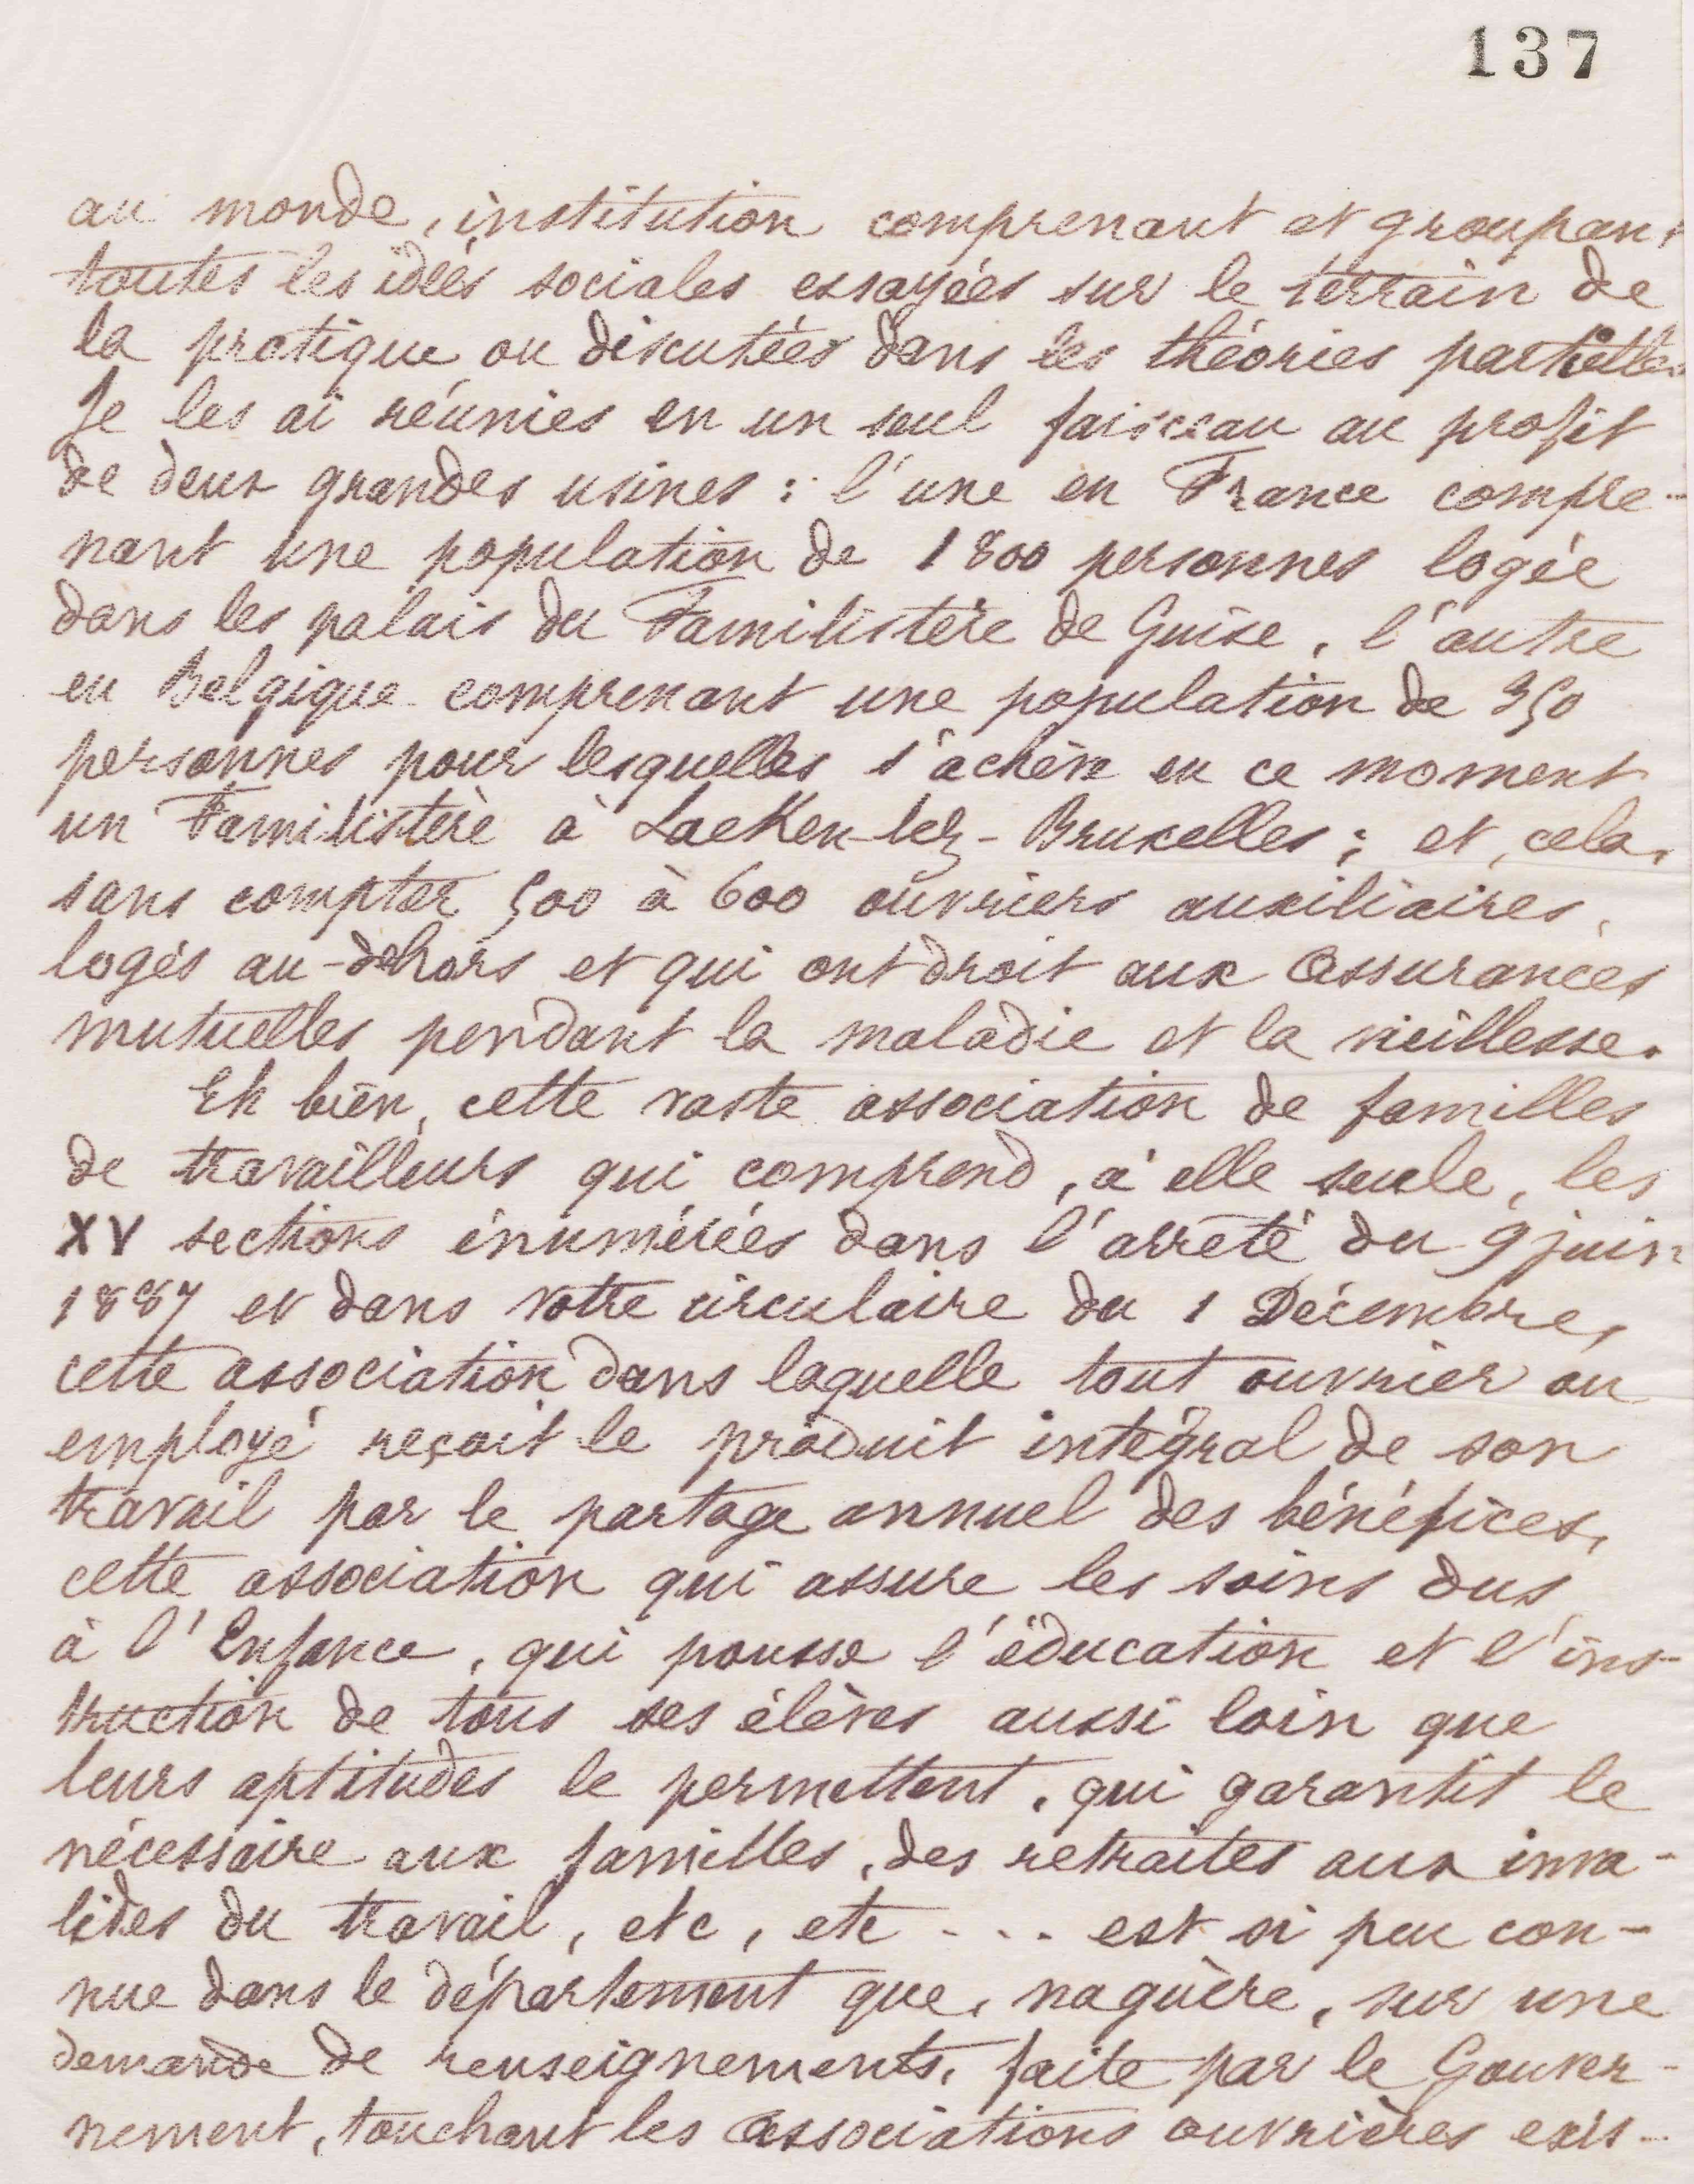 137
au monde, institution comprenant et groupant
toutes les idées sociales essayées sur le terrain de
la pratique ou discutées dans les théories partielles
Je les ai réunies en un seul faisceau au profit
de deux grandes usines : l'une en France compre-
nant une population de 1800 personnes logée
dans les palais du Familistère de Guise, l'autre
en Belgique comprenant une population de 350
personnes pour lesquelles s'achève en ce moment
un Familistère à Laeken-lez-Bruxelles ; et, cela,
sans compter 500 à 600 ouvriers auxiliaires,
logés au-dehors et qui ont droit aux Assurances
mutuelles pendant la maladie et la vieillesse.
Eh bien, cette vaste association de familles
de travailleurs qui comprend, à elle seule, les
XV sections énumérées dans l'arrêté du 9 juin
1887 et dans votre circulaire du 1 Décembre,
cette association dans laquelle tout ouvrier ou
employé reçoit le produit intégral de son
travail par le partage annuel des bénéfices,
cette association qui assure les soins dus
à l'Enfance, qui pousse l'éducation et l'ins-
truction de tous ses élèves aussi loin que
leurs aptitudes le permettent, qui garantit le
nécessaire aux familles, des retraites aux inva-
lides du travail, etc, etc - . . . est si peu con-
nue dans le département que, naguère, sur une
demande de renseignements, faite par le Gouver-
nement, touchant les associations ouvrières exis-